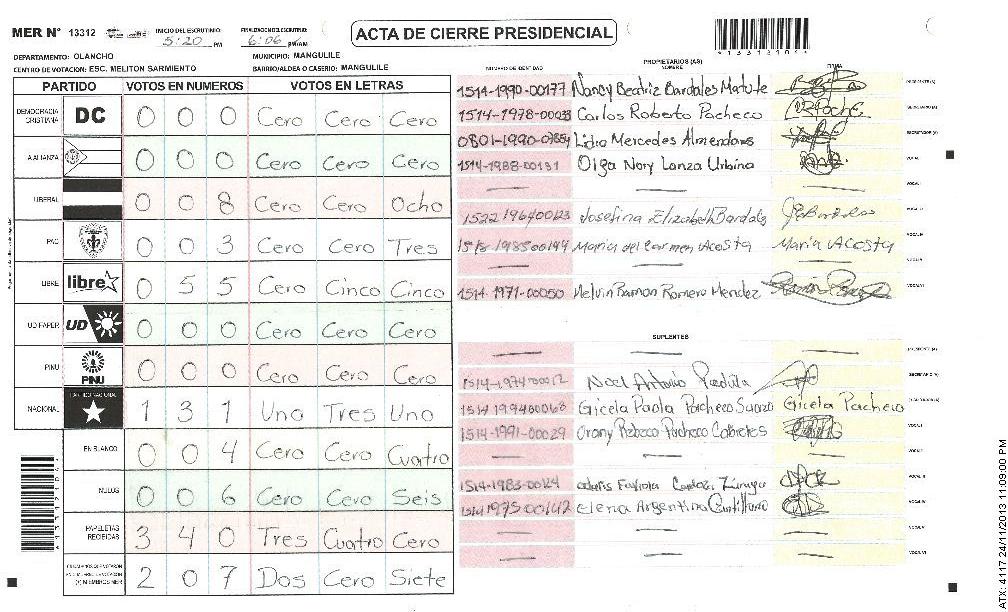 MER N° 13312
INICIO DEL ESCRUTINIO
5:20 PM
FINALIZACION ESCRUTINIO
6:06 PM/AM
ACTA DE CIERRE PRESIDENCIAL
DEPARTAMENTO: OLANCHO
MUNICIPIO: MANGULILE
CENTRO DE VOTACION: ESC. MELITON SARMIENTO
BARRIO/ALDEA O CASERIO: MANGULILE
PARTIDO VOTOS EN NUMEROS VOTOS EN LETRAS
DEMOCRACIA CRISTIANA DC 0 0 0 Cero Cero Cero
ALIANZA 0 0 0 Cero Cero Cero
LIBERAL 0 0 8 Cero Cero Ocho
PAC 0 0 3 Cero Cero Tres
LIBRE libre 0 5 5 Cero Cinco Cinco
UD FAPER UD 0 0 0 Cero Cero Cero
PINU PINU 0 0 0 Cero Cero Cero
NACIONAL PARTIDO NACIONAL 1 3 1 Uno Tres Uno
EN BLANCO 0 0 4 Cero Cero Cuatro
NULOS 0 0 6 Cero Cero Seis
PAPELETAS RECIBIDAS 3 4 0 Tres Cuatro Cero
2 0 7 Dos Cero Siete
PROPIETARIOS (AS)
NUMERO DE IDENTIDAD NOMBRE FIRMA
1514-1990-00177 Nancy Beatriz Bardales Matute
1514-1978-00033 Carlos Roberto Pacheco
0801-1990- Lidia Mercedes Almendares
1514-1988-00131 Olga Nory Lanza Urbina
1522196400123 Josefina Elizabeth Bardales
Maria del Carmen Acosta Maria Acosta
1514-1971-00050 Melvin Ramon Romero Mendez
SUPLENTES
1514-1974-00012 Noel Antonio Padilla
1514199400068 Gicela Paola Pacheco Gicela Pacheco
1514-1991-00029 Pacheco
1514-1983-00124
1514197500142 Elena Argentina
ATX: 4117 24/11/2013 11:09:00 PM